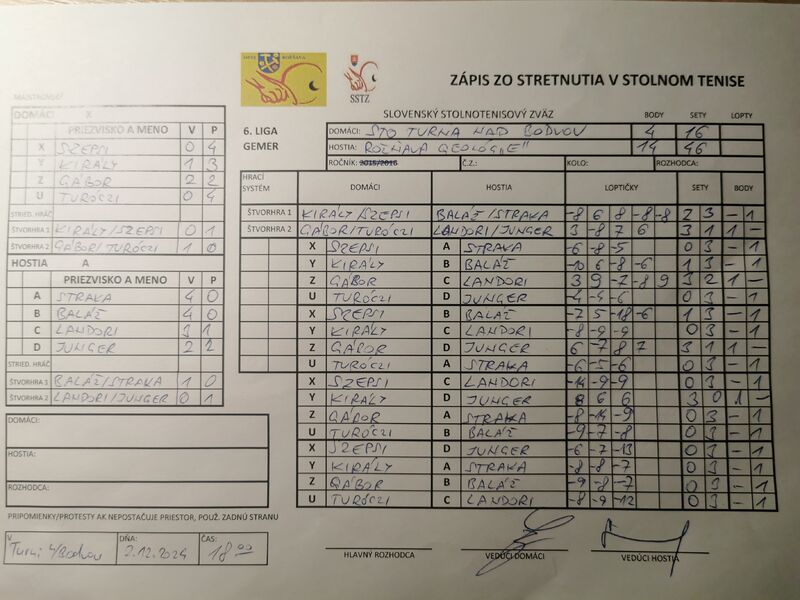 SSTZ
ZÁPIS ZO STRETNUTIA V STOLNOM TENISE
SLOVENSKÝ STOLNOTENISOVÝ ZVÄZ BODY SETY LOPTY
6. LIGA DOMÁCI: STO TURŇA NAD BODVOU 4 16
GEMER HOSTIA: ROŽŇAVA GEOLÓG „E" 14 46
ROČNÍK: 2015/2016 Č.Z.: KOLO: ROZHODCA:
DOMÁCI X
PRIEZVISKO A MENO V P
X SZEPSI 0 4
Y KIRÁLY 1 3
Z GÁBOR 2 2
U TURÓCZI 0 4
STRIED. HRÁČ
ŠTVORHRA 1 KIRÁLY/SZEPSI 0 1
ŠTVORHRA 2 GÁBOR/TURÓCZI 1 0
HOSTIA A
PRIEZVISKO A MENO V P
A STRAKA 4 0
B BALÁŽ 4 0
C LANDORI 3 1
D JUNGER 2 2
STRIED. HRÁČ
ŠTVORHRA 1 BALÁŽ/STRAKA 1 0
ŠTVORHRA 2 LANDORI/JUNGER 0 1
DOMÁCI:
HOSTIA:
ROZHODCA:
PRIPOMIENKY/PROTESTY AK NEPOSTAČUJE PRIESTOR, POUŽ. ZADNÚ STRANU
V DŇA: ČAS:
Turni n/Bodvou 2.12.2024 18 00
HRACÍ SYSTÉM DOMÁCI HOSTIA LOPTIČKY SETY BODY
ŠTVORHRA 1 KIRÁLY/SZEPSI BALÁŽ/STRAKA -8 6 8 -8 -8 2 3 - 1
ŠTVORHRA 2 GÁBOR/TURÓCZI LANDORI/JUNGER 3 -8 7 6 3 1 1 -
X SZEPSI A STRAKA -6 -8 -5 0 3 - 1
Y KIRÁLY B BALÁŽ -10 6 -8 -6 1 3 - 1
Z GÁBOR C LANDORI 3 9 -7 -8 9 3 2 1 -
U TURÓCZI D JUNGER -4 -4 -6 0 3 - 1
X SZEPSI B BALÁŽ -7 5 -18 -6 1 3 - 1
Y KIRÁLY C LANDORI -8 -9 -9 0 3 - 1
Z GÁBOR D JUNGER 6 -7 8 7 3 1 1 -
U TURÓCZI A STRAKA -6 -5 -6 0 3 - 1
X SZEPSI C LANDORI -14 -9 -9 0 3 - 1
Y KIRÁLY D JUNGER 8 6 6 3 0 1 -
Z GÁBOR A STRAKA -8 -14 -9 0 3 - 1
U TURÓCZI B BALÁŽ -9 -7 -8 0 3 - 1
X SZEPSI D JUNGER -6 -7 -13 0 3 - 1
Y KIRÁLY A STRAKA -8 -8 -7 0 3 - 1
Z GÁBOR B BALÁŽ -9 -8 -7 0 3 - 1
U TURÓCZI C LANDORI -8 -9 -12 0 3 - 1
HLAVNÝ ROZHODCA VEDÚCI DOMÁCI VEDÚCI HOSTIA